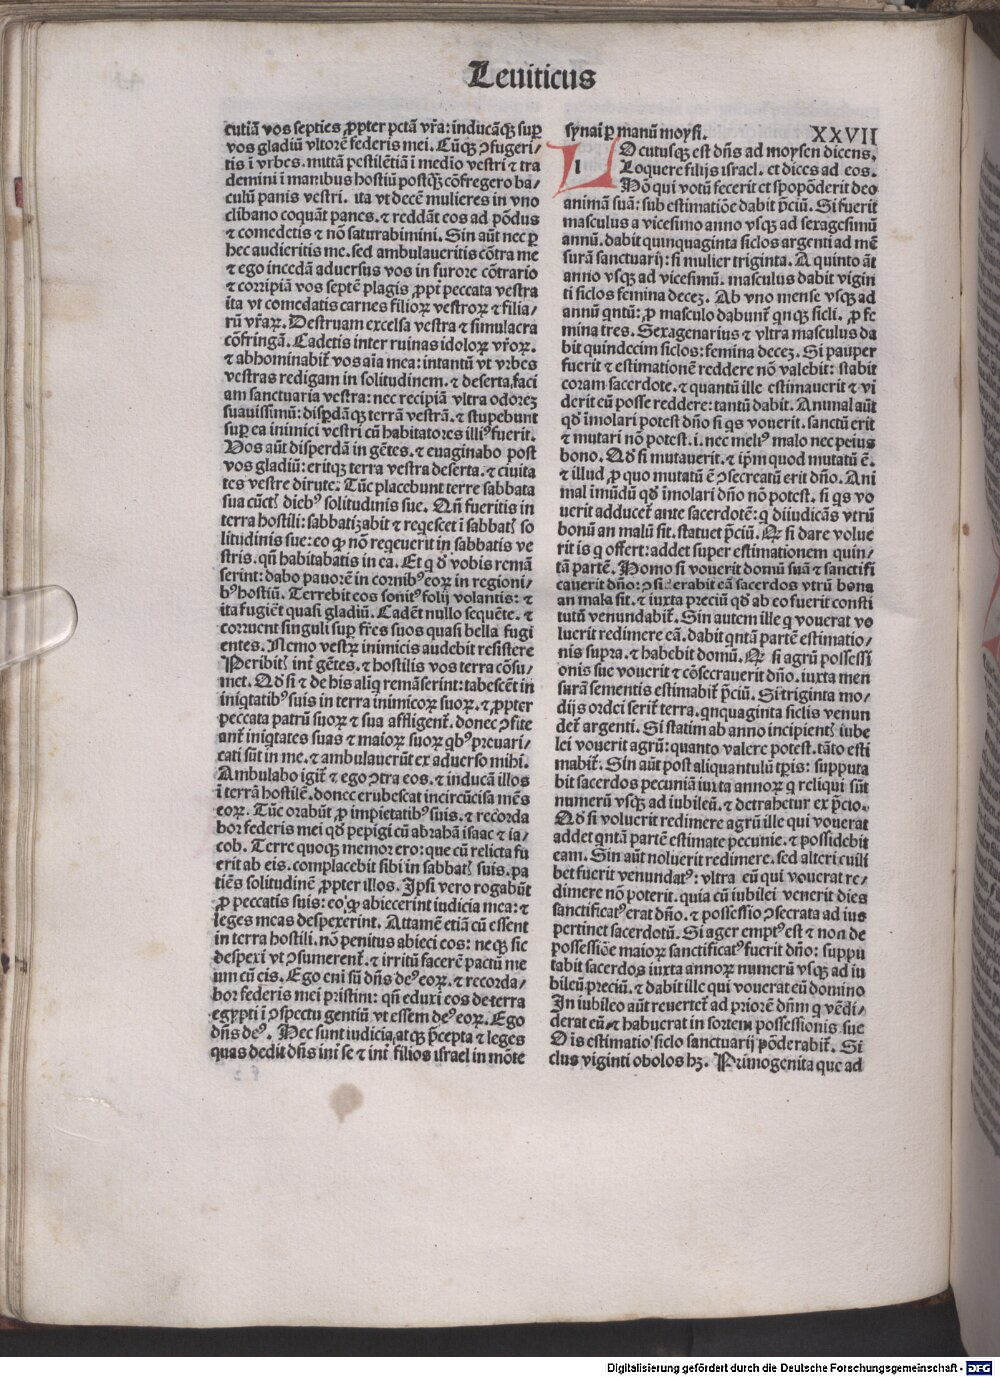 Leuiticus
cutiā vos septies ꝓpter pctā vr̄a: inducāqꝫ suꝑ
vos gladiū vltorē federis mei. Cūqꝫ ↄfugeri/
tis ī vrbes. mittā pestilētiā ī medio vestri ⁊ tra
demini ī manibus hostiū postqꝫ cōfregero ba/
culū panis vestri. ita vt decē mulieres in vno
clibano coquāt panes. ⁊ reddāt eos ad pōdus
⁊ comedetis ⁊ nō saturabimini. Sin aūt nec ꝑ
hec audieritis me. sed ambulaueritis cōtra me
⁊ ego incedā aduersus vos in furore cōtrario
⁊ corripiā vos septē plagis ꝓpt̄ peccata vestra
ita vt comedatis carnes filioꝝ vestroꝝ ⁊ filia/
rū vr̄aꝝ. Destruam excelsa vestra ⁊ simulacra
cōfringā. Cadetis inter ruinas idoloꝝ vr̄oꝝ.
⁊ abhominabit̄ vos aīa mea: intantū vt vrbes
vestras redigam in solitudinem. ⁊ deserta faci
am sanctuaria vestra: nec recipiā vltra odoreꝫ
suauissimū: disꝑdāqꝫ terrā vestrā. ⁊ stupebunt
suꝑ ea inimici vestri cū habitatores illiꝰ fuerit.
Vos aūt disperdā in gētes. ⁊ euaginabo post
vos gladiū: eritqꝫ terra vestra deserta. ⁊ ciuita
tes vestre dirute. Tūc placebunt terre sabbata
sua cūctꝭ diebꝰ solitudinis sue. Qn̄ fueritis in
terra hostili: sabbatizabit ⁊ reqescet ī sabbatꝭ so
litudinis sue: eo ꝙ nō reqeuerit in sabbatis ve
stris. qn̄ habitabatis in ea. Et q d̄ vobis remā
serint: dabo pauorē in cordibꝰ eoꝝ in regioni/
bꝰ hostiū. Terrebit eos sonitꝰ folij volantis: ⁊
ita fugiēt quasi gladiū. Cadēt nullo sequēte. ⁊
corruent singuli suꝑ fr̄es suos quasi bella fugi
entes. Nemo vestꝝ inimicis audebit resistere
Peribitꝭ int̄ gētes. ⁊ hostilis vos terra cōsu/
met. Qd̄ si ⁊ de his aliq remāserint: tabescēt in
iniqtatibꝰ suis in terra inimicoꝝ suoꝝ. ⁊ ꝓpter
peccata patrū suoꝝ ⁊ sua affligent̄. donec ↄfite
ant̄ iniqtates suas ⁊ maioꝝ suoꝝ qbꝰ preuari/
cati sūt in me. ⁊ ambulauerūt ex aduerso mihi.
Ambulabo igit̄ ⁊ ego ↄtra eos. ⁊ inducā illos
ī terrā hostilē. donec erubescat incircūcisa mēs
eoꝝ. Tūc orabūt ꝓ impietatibꝰ suis. ⁊ recorda
bor federis mei qd̄ pepigi cū abrahā isaac ⁊ ia/
cob. Terre quoqꝫ memor ero: que cū relicta fu
erit ab eis. complacebit sibi in sabbatꝭ suis. pa
tiēs solitudinē ꝓpter illos. Ipsi vero rogabūt
ꝓ peccatis suis: eo ꝙ abiecerint iudicia mea: ⁊
leges meas despexerint. Attamē etiā cū essent
in terra hostili. nō penitus abieci eos: neqꝫ sic
despexi vt ↄsumerent̄. ⁊ irritū facerē pactū me
um cū eis. Ego eni sū dn̄s deꝰ eoꝝ. ⁊ recorda/
bor federis mei pristini: qn̄ eduxi eos de terra
egypti ī ↄspectu gentiū vt essem deꝰ eoꝝ. Ego
dn̄s deꝰ. Hec sunt iudicia atqꝫ p̄cepta ⁊ leges
quas dedit dn̄s int̄ se ⁊ int̄ filios israel in mōte
synai ꝑ manū moysi. XXVII
l
Ocutusqꝫ est dn̄s ad moysen dicens.
Loquere filijs israel. et dices ad eos.
Hō qui votū fecerit et spopōderit deo
animā suā: sub estimatiōe dabit p̄ciū. Si fuerit
masculus a vicesimo anno vsqꝫ ad sexagesimū
annū. dabit quinquaginta siclos argenti ad mē
surā sanctuarij: si mulier triginta. A quinto āt
anno vsqꝫ ad vicesimū. masculus dabit vigin
ti siclos femina deceꝫ. Ab vno mense vsqꝫ ad
annū qntū: ꝓ masculo dabunt̄ qnqꝫ sicli. ꝓ fe
mina tres. Sexagenarius ⁊ vltra masculus da
bit quindecim siclos: femina deceꝫ. Si pauper
fuerit ⁊ estimationē reddere nō valebit: stabit
coram sacerdote. ⁊ quantū ille estimauerit ⁊ vi
derit eū posse reddere: tantū dabit. Animal aūt
qd̄ īmolari potest dn̄o si qs vouerit. sanctū erit
⁊ mutari nō potest. i. nec meliꝰ malo nec peius
bono. Qd̄ si mutauerit. ⁊ ip̄m quod mutatū ē.
⁊ illud ꝓ quo mutatū ē ↄsecratū erit dn̄o. Ani
mal īmūdū qd̄ īmolari dn̄o nō potest. si qs vo
uerit adducet̄ ante sacerdotē: q diiudicās vtrū
bonū an malū sit. statuet p̄ciū. Qꝛ si dare volue
rit is q offert: addet super estimationem quin/
tā partē. Homo si vouerit domū suā ⁊ sanctifi
cauerit dn̄o: ↄsiderabit eā sacerdos vtrū bona
an mala sit. ⁊ iuxta preciū qd̄ ab eo fuerit consti
tutū venundabit̄. Sin autem ille q vouerat vo
luerit redimere eā. dabit qntā partē estimatio/
nis supra. ⁊ habebit domū. Qꝛ si agrū possessi
onis sue vouerit ⁊ cōsecrauerit dn̄o. iuxta men
surā sementis estimabit̄ p̄ciū. Si triginta mo/
dijs ordei serit̄ terra. qnquaginta siclis venun
det̄ argenti. Si statim ab anno incipientꝭ iube
lei vouerit agrū: quanto valere potest. tāto esti
mabit̄. Sin aūt post aliquantulū tp̄is: supputa
bit sacerdos pecuniā iuxta annoꝝ q reliqui sūt
numerū vsqꝫ ad iubileū. ⁊ detrahetur ex p̄cio.
Qd̄ si voluerit redimere agrū ille qui vouerat
addet qntā partē estimate pecunie. ⁊ possidebit
eam. Sin aūt noluerit redimere. sed alteri cuili
bet fuerit venundatꝰ: vltra eū qui vouerat re/
dimere nō poterit. quia cū iubilei venerit dies
sanctificatꝰ erat dn̄o. ⁊ possessio ↄsecrata ad ius
pertinet sacerdotū. Si ager emptꝰ est ⁊ non de
possessiōe maioꝝ sanctificatꝰ fuerit dn̄o: suppu
tabit sacerdos iuxta annoꝝ numerū vsqꝫ ad iu
bileū preciū. ⁊ dabit ille qui vouerat eū domino
In iubileo aūt reuertet̄ ad priorē dn̄m q vēdi/
derat eū. ⁊ habuerat in sortem possessionis sue
Ois estimatio siclo sanctuarij pōderabit̄. Si
clus viginti obolos hꝫ. Primogenita que ad
Digitalisierung gefördert durch die Deutsche Forschungsgemeinschaft - DFG